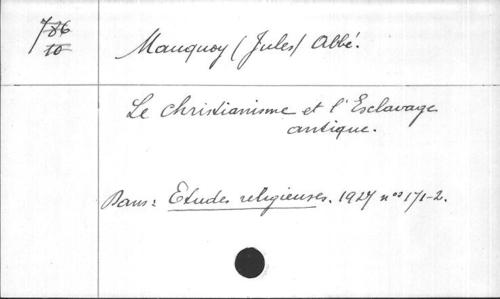 786
10
Mauquoy (Jules) Abbé.
Le Christianisme et l'Esclavage
antique.
Dans: Etudes religieuses. 1927 nos 171-2.